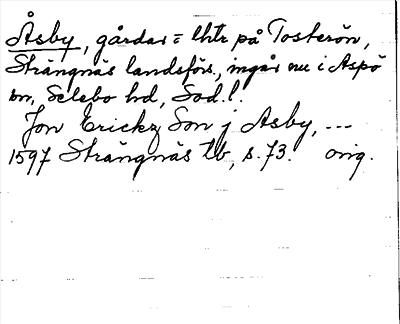 Åsby, gårdar = lhtr på Tosterön,
Strängnäs landsförs., ingår nu i Aspö
sn, Selebo hd, Söd.l.
Jon Erickz Son j Asby, ---
1597 Strängnäs tb, s. 73. orig.